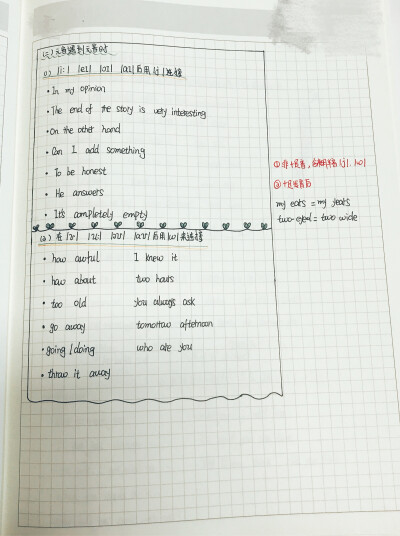 (二)元音遇到元音时
(1) |i:| |eɪ| |ɔɪ| |aɪ|后用|j|连接
· In my opinion
· The end of the story is very interesting
· On the other hand
· Can I add something
· To be honest
· He answers
· It's completely empty
(2) 在 |ʊ| |u:| |əʊ| |aʊ|后用|w|来连接
· how awful I knew it
· how about two hours
· too old you always ask
· go away tomorrow afternoon
· going / doing who are you
· throw it away
my ears = my jears
two-eyed = two wide